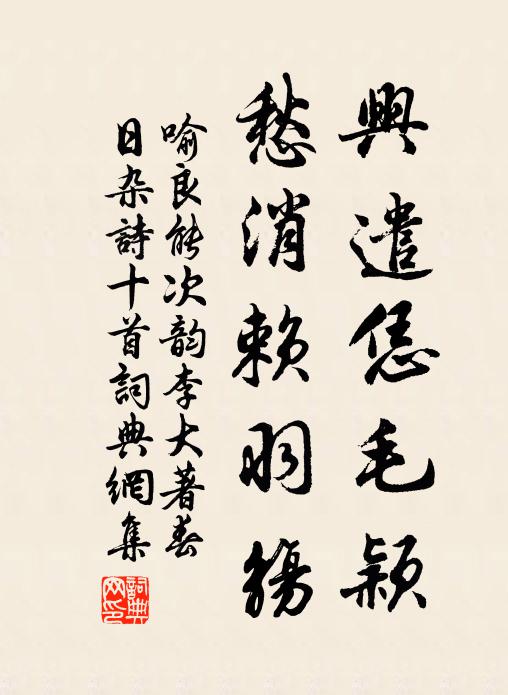 興遣恁毛颖
愁消赖羽觴
喻良能次韵李大著春
日杂詩十首詞典網集
詞典网印